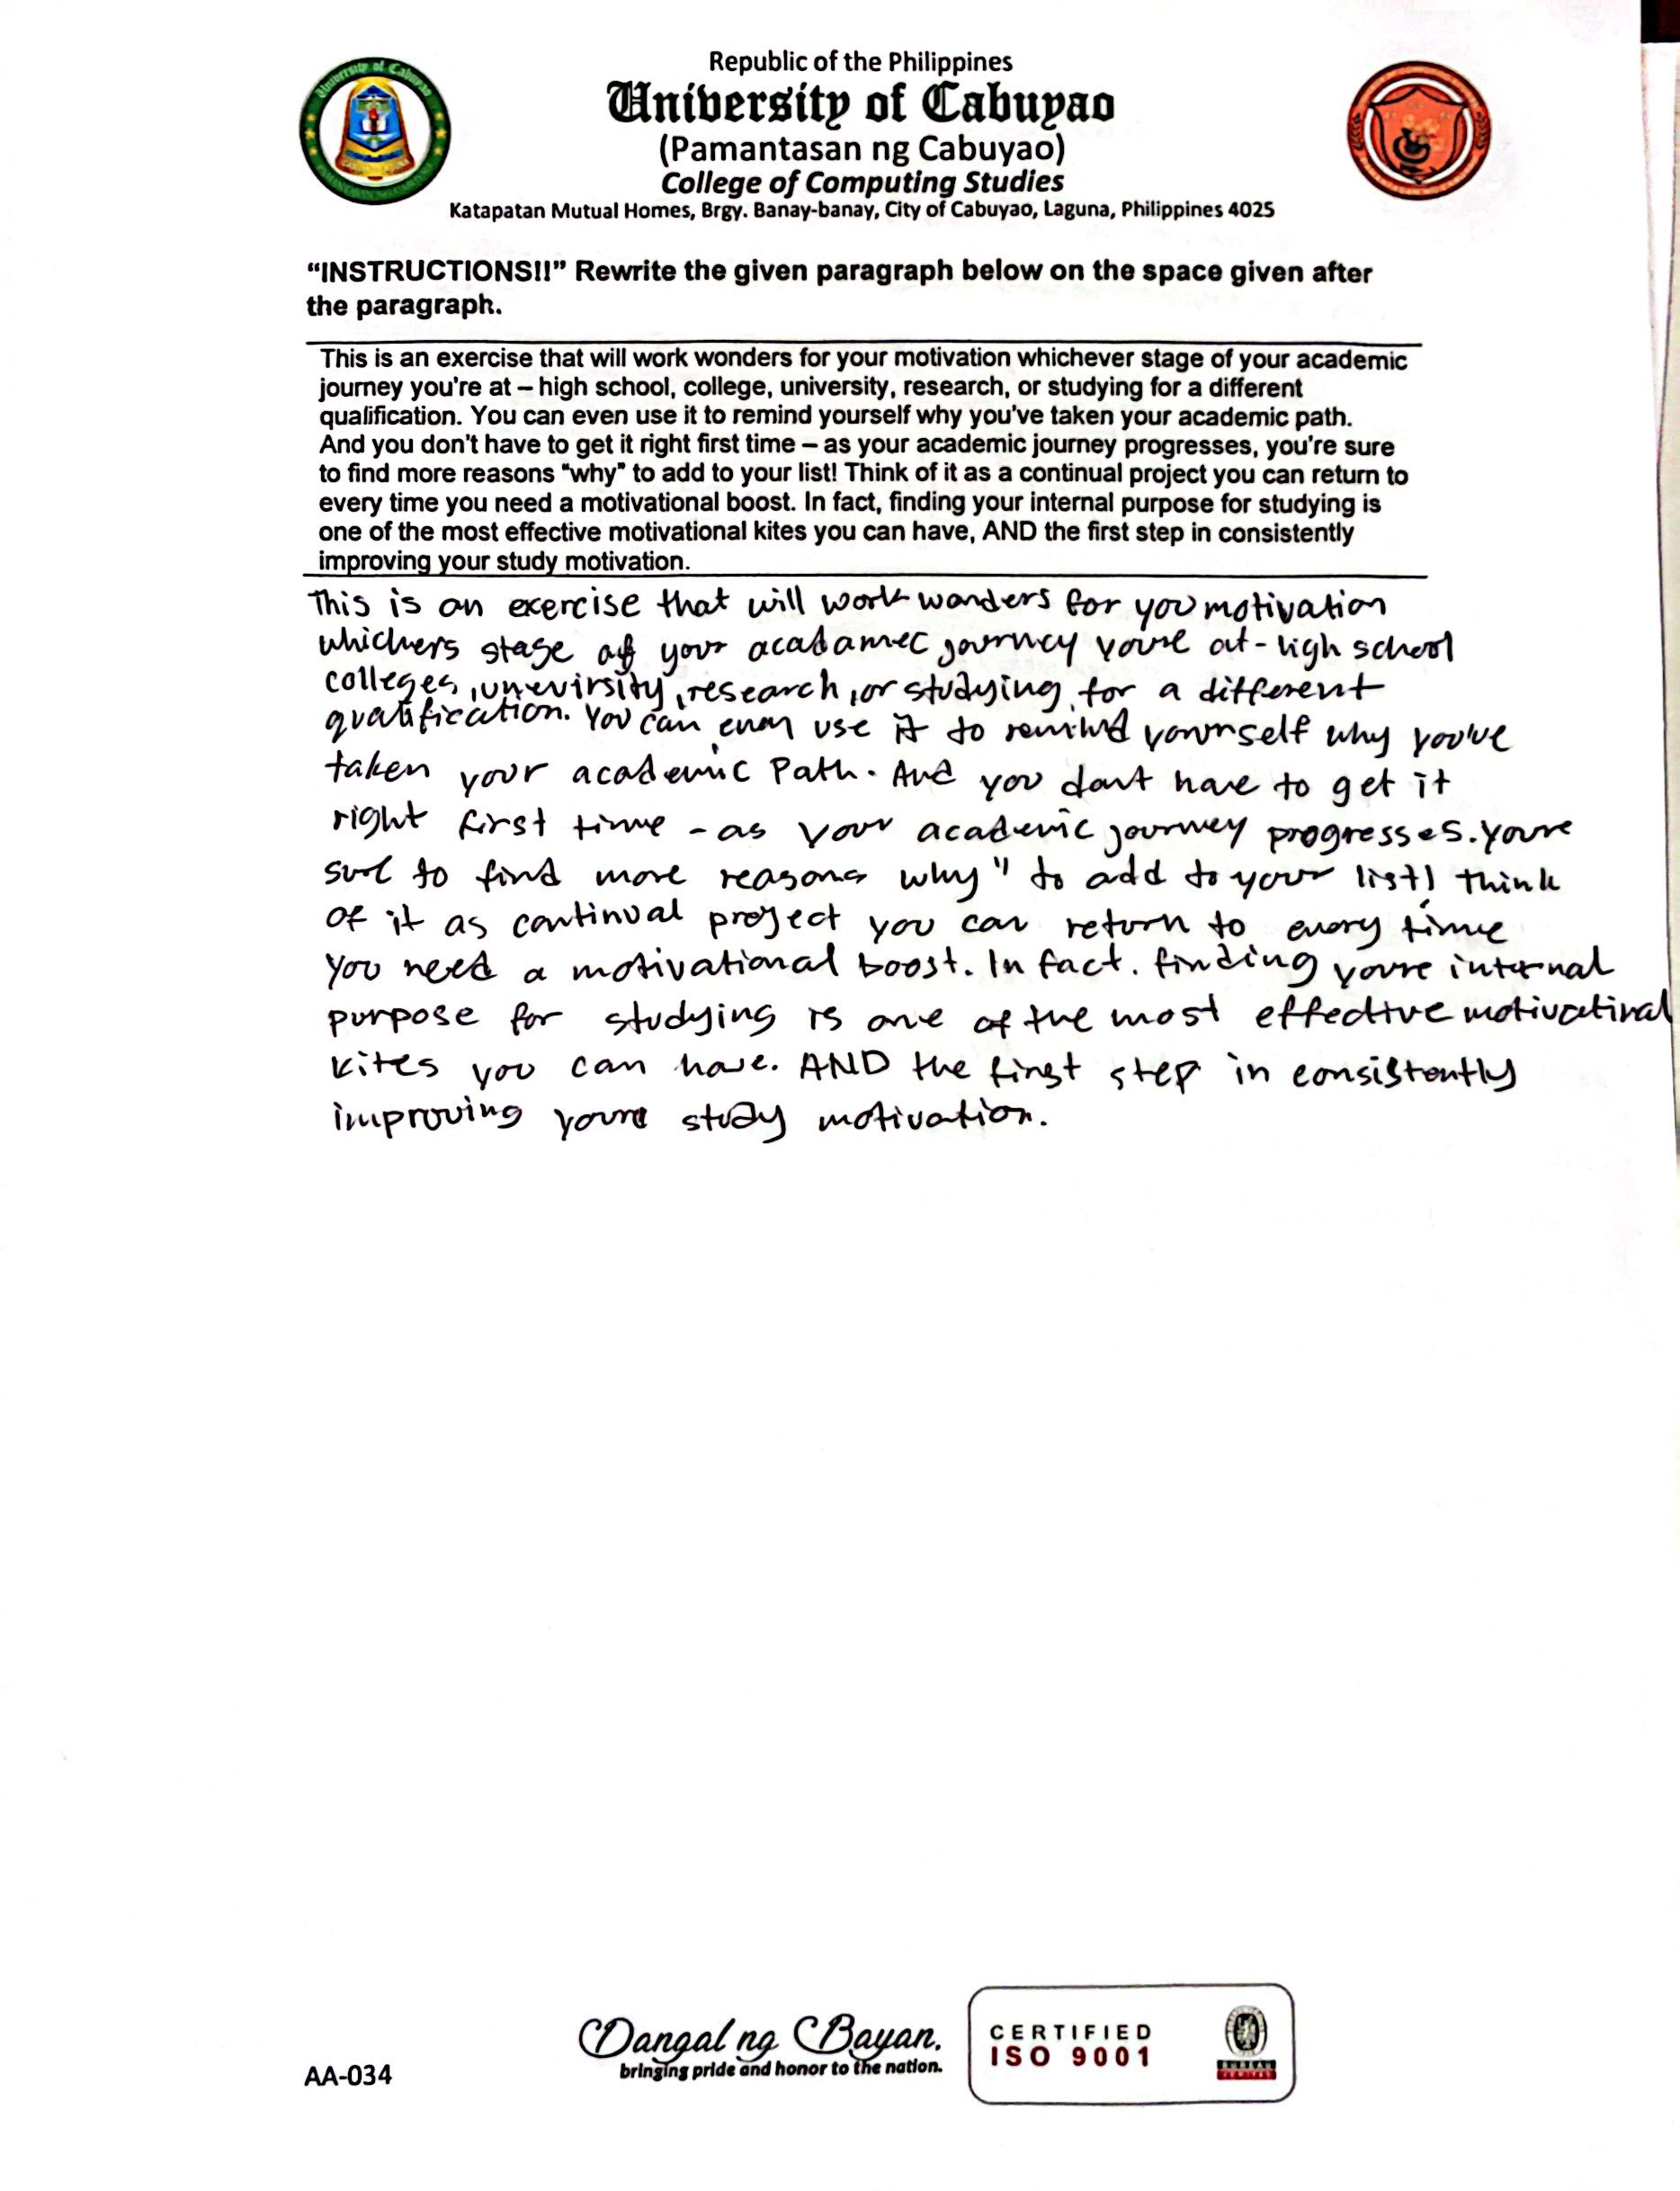 Republic of the Philippines
University of Cabuyao
(Pamantasan ng Cabuyao)
College of Computing Studies
Katapatan Mutual Homes, Brgy. Banay-banay, City of Cabuyao, Laguna, Philippines 4025
University of Cabuyao
PAMANTASAN NG CABUYAO
“INSTRUCTIONS!!” Rewrite the given paragraph below on the space given after
the paragraph.
This is an exercise that will work wonders for your motivation whichever stage of your academic
journey you're at – high school, college, university, research, or studying for a different
qualification. You can even use it to remind yourself why you've taken your academic path.
And you don't have to get it right first time – as your academic journey progresses, you're sure
to find more reasons “why” to add to your list! Think of it as a continual project you can return to
every time you need a motivational boost. In fact, finding your internal purpose for studying is
one of the most effective motivational kites you can have, AND the first step in consistently
improving your study motivation.
This is an exercise that will work wonders for you motivation
whichers stage of your acadamec journey youre at - high school
colleges, unevirsity, research, or studying for a different
qualification. You can even use it to remind yourself why you've
taken your academic Path. And you dont have to get it
right first time - as your academic journey progresses. youre
sure to find more reasons why" to add to your list! think
of it as continual project you can return to every time
you need a motivational boost. In fact. finding youre internal
purpose for studying is one of the most effective motivatinal
kites you can have. AND the first step in consistently
improving youre study motivation.
AA-034
Dangal ng Bayan.
bringing pride and honor to the nation.
CERTIFIED
ISO 9001
BUREAU
VERITAS